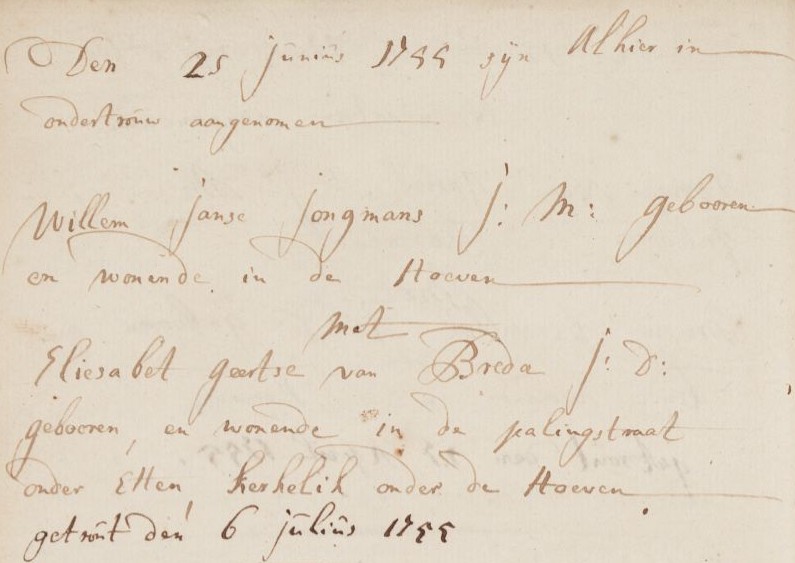 Den 25 Junius 1755 syn Alhier in
ondertrouw aangenomen
Willem Janse Jongmans J: M: gebooren
en wonende in de Hoeven
met
Eliesabet geertse van Breda J: D:
gebooren, en wonende in de palingstraat
onder Etten, kerkelik onder de Hoeven
getrout den 6 Julius 1755